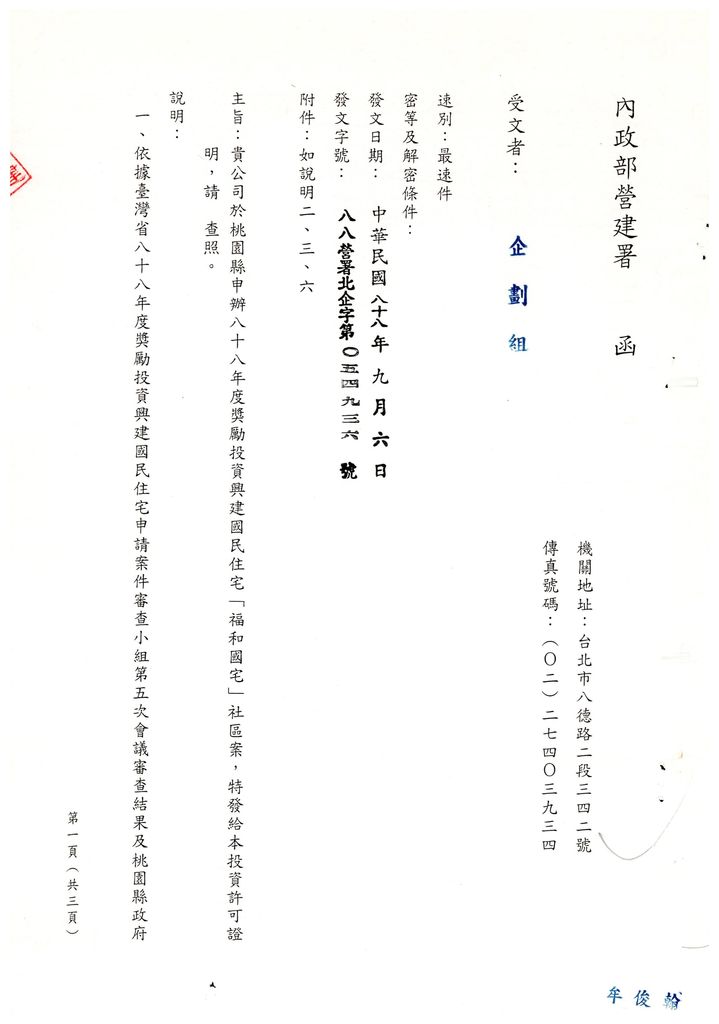 內政部營建署　函
機關地址：台北市八德路二段三四二號
傳真號碼：（〇二）二七四〇三九三四
受文者：企劃組
速別：最速件
密等及解密條件：
發文日期：中華民國八十八年九月六日
發文字號：八八營署北企字第〇五四九三六號
附件：如說明二、三、六
主旨：貴公司於桃園縣申辦八十八年度獎勵投資興建國民住宅「福和國宅」社區案，特發給本投資許可證
明，請　查照。
說明：
一、依據臺灣省八十八年度獎勵投資興建國民住宅申請案件審查小組第五次會議審查結果及桃園縣政府
第一頁（共三頁）
牟俊翰